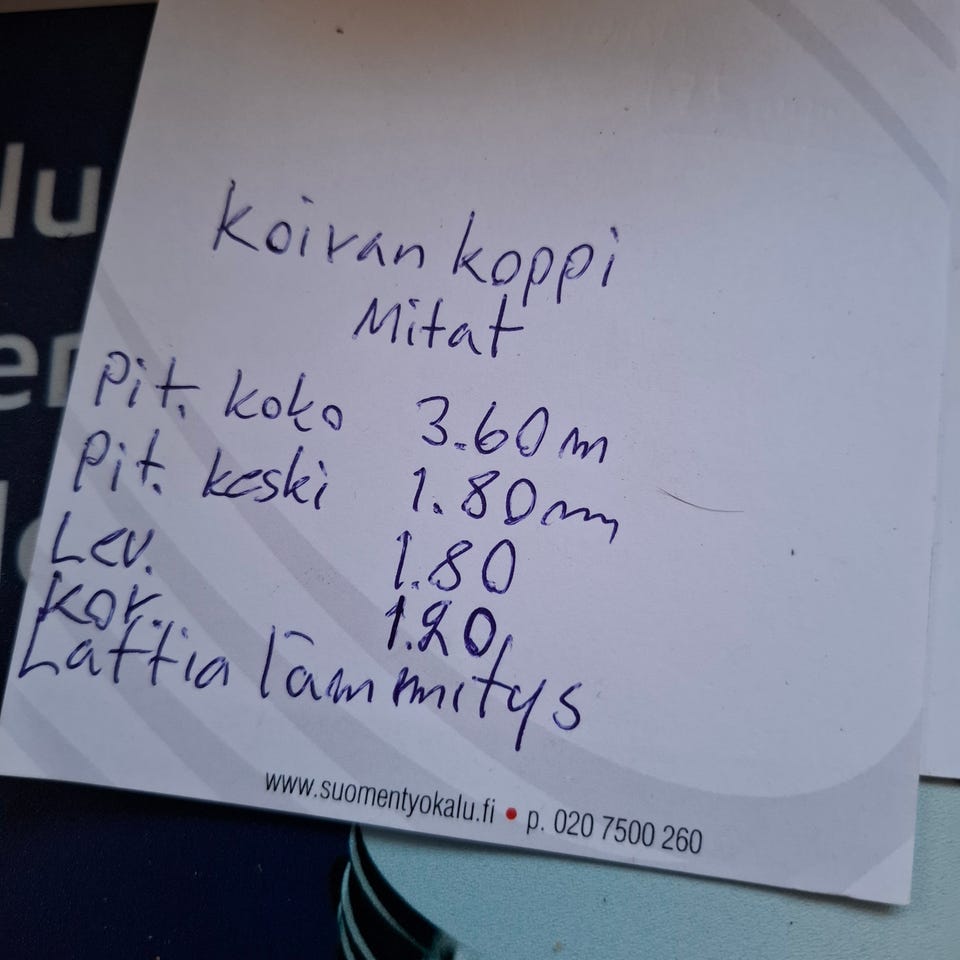 Koiran koppi
Mitat
Pit. koko 3.60 m
Pit. keski 1.80 m
Lev. 1.80
Kor. 1.20
Lattia lämmitys
www.suomentyokalu.fi • p. 020 7500 260
lu
er